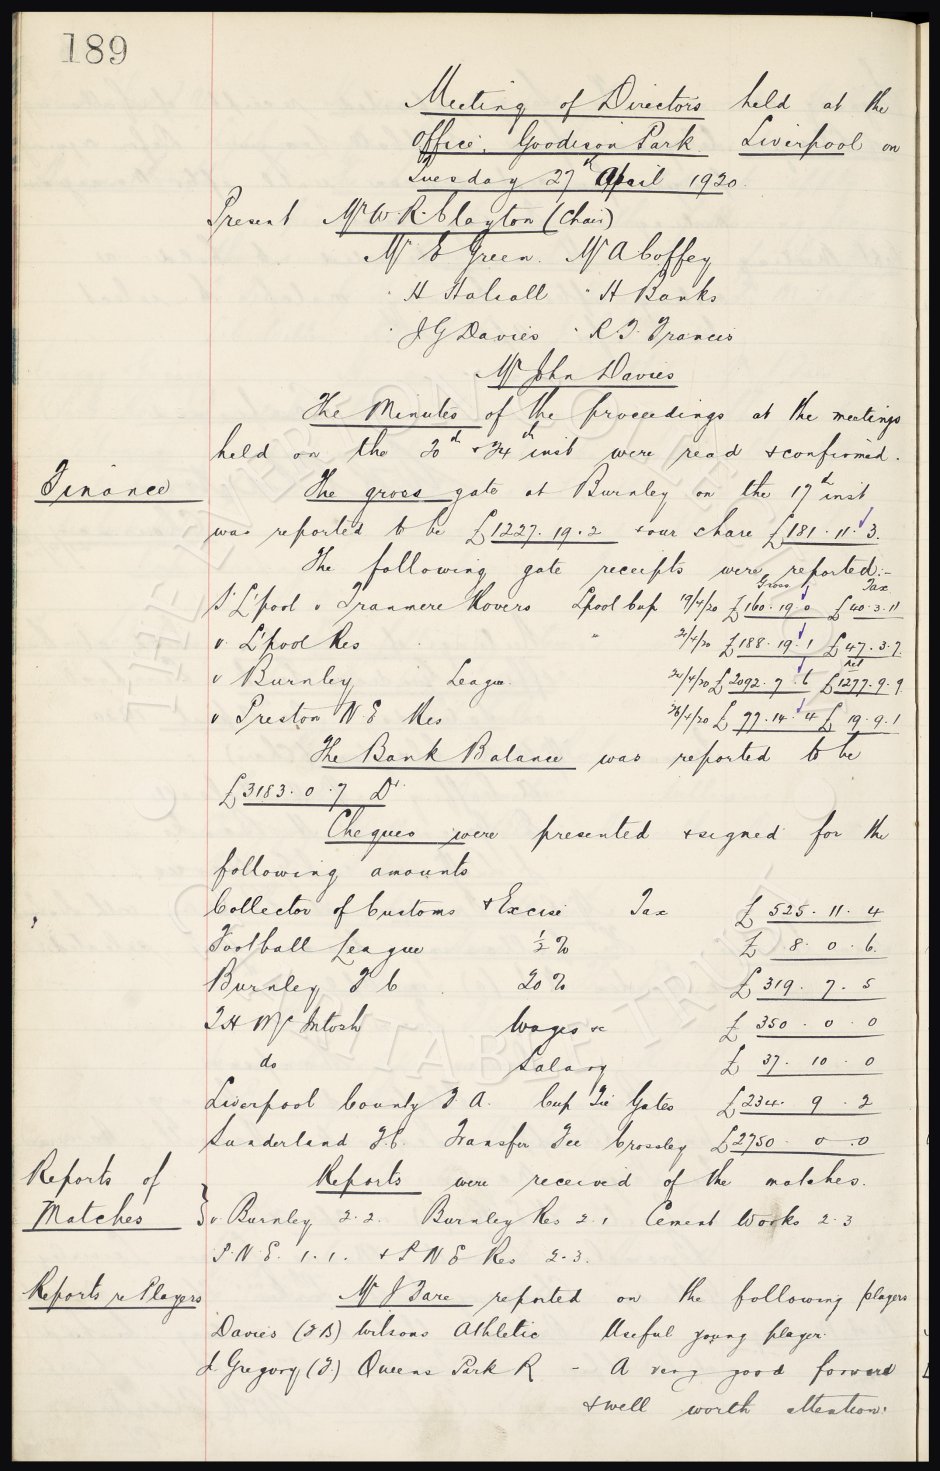 189
Meeting of Directors held at the
Office, Goodison Park Liverpool on
Tuesday 27th April 1920.
Present Mr W. R. Clayton (Chair)
Mr E Green. Mr A Coffey
" H Halsall " H Banks
" J G Davies " R T. Francis
Mr John Davies
The Minutes of the proceedings at the meetings
held on the 20th & 24th inst were read & confirmed.
Finance
The gross gate at Burnley on the 17th inst
was reported to be £1227. 19. 2 & our share £181. 11. 3.
The following gate receipts were reported:-
Gross Tax
S. L'pool v Tranmere Rovers Lpool Cup 19/4/20 £160. 19. 0 £40. 3. 11
v. L'pool Res " 21/4/20 £188. 19. 1 £47. 3. 7.
Net
v Burnley League. 24/4/20 £2092. 7. 6 £1277. 9. 9
v Preston N E Res 26/4/20 £77. 14. 4 £19. 9. 1
The Bank Balance was reported to be
£3183. 0. 7 Dr.
Cheques were presented & signed for the
following amounts
Collector of Customs & Excise Tax £525. 11. 4
Football League ½% £8. 0. 6.
Burnley F C 20% £319. 7. 5
T H McIntosh Wages &c £350. 0. 0
do Salary £37. 10. 0
Liverpool County F A. Cup Tie Gates £234. 9. 2
Sunderland F C. Transfer Fee Crossley £2750. 0. 0
Reports of
Matches
Reports were received of the matches.
v. Burnley 2. 2. Burnley Res 2. 1 Cement Works 2. 3
P. N. E. 1. 1. & P N E Res 2. 3.
Reports re Players
Mr J Fare reported on the following players
Davies (F B) Wilsons Athletic Useful young player.
J Gregory (F.) Queens Park R - A very good forward
& well worth attention.